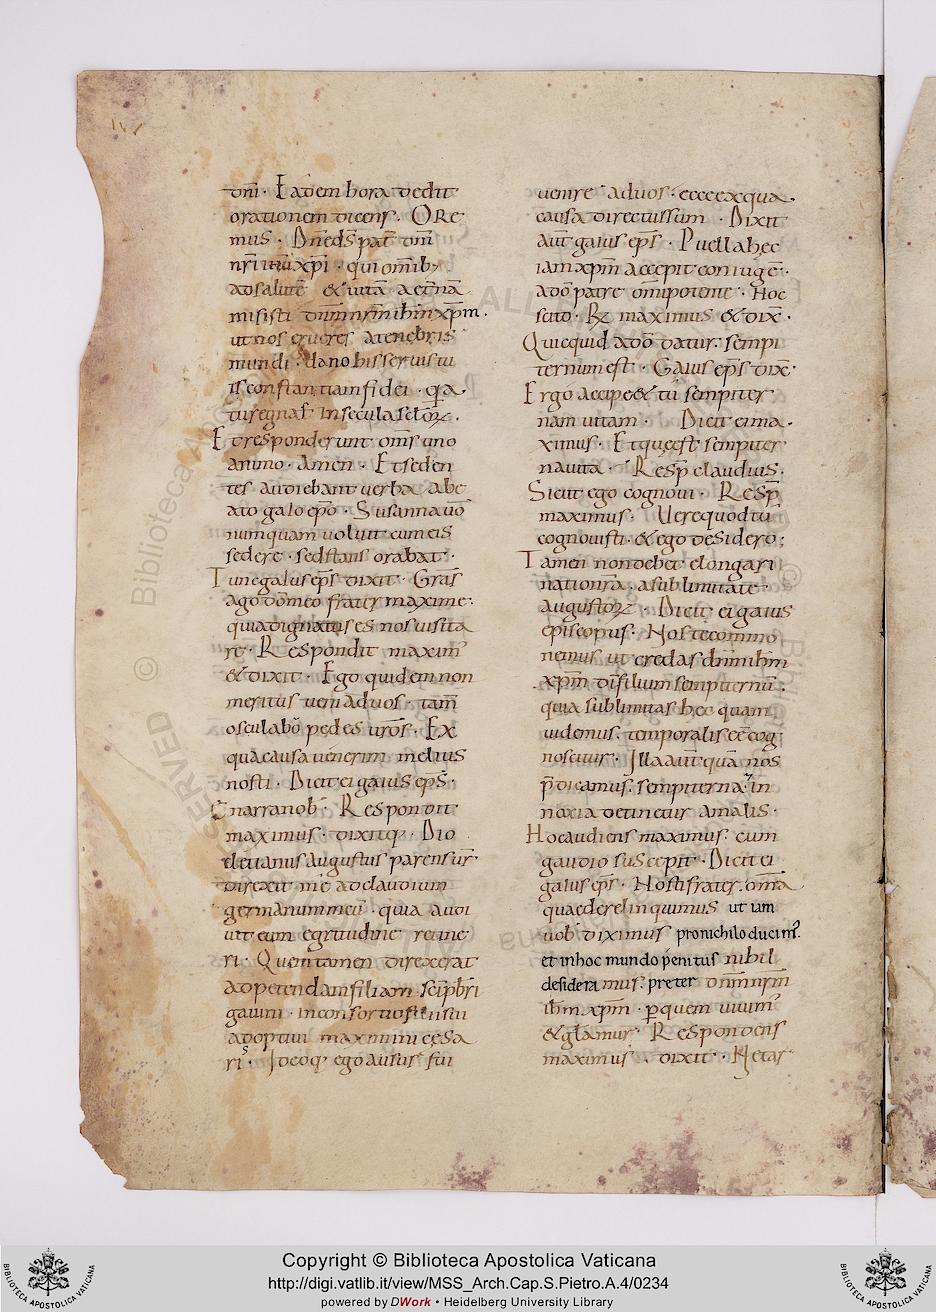 dñi · Eadem hora dedit
orationem dicens · ORe
mus · Dñe dš pat̄ dñi
nr̄i ihū xp̄i · qui omĩb;
ad salutē & uitā aet̄nā
misisti dñm nr̄m ihm̄ xp̄m ·
ut nos erueres a tenebris
mundi · da nobis seruis tu
is constantiam fidei · q̄a
tu regnas in secula sc̄lor̄ ·
Et responderunt om̄s uno
animo · Amen · Et seden
tes audiebant uerba abe
ato gaio ep̄o · Susanna uō
numquam uoluit cum eis
sedere · sed stans orabat ·
Tunc gaius ep̄s dixit · Gras̄
ago dō meo frater maxime ·
quia dignatus es nos uisita
re · Respondit maxim̄
& dixit · Ego quidem non
meritus ueni ad uos · tam̄
osculabō pedes ur̄os · Ex
qua causa uenerim melius
nosti · Dicit ei gaius ep̄s ·
Enarra nob̄ · Respondit
maximus · dixitq; · Dio
cletianus augustus parens ur̄
direxit me ad claudium
germanum meū · quia audi
uit eum egritudine retine
ri · Quem tamen direxerat
ad petendam filiam sc̄i pb̄ri
gauini · in consortio filii sui
adoptiui maximini cesa
ris · Idcoq; ego ausus sui
uenire ad uos · ecce ex qua
causa directus sum · Dixit
aut̄ gaius ep̄s · Puella hec
iam xp̄m accepit coniugē ·
a dō patre omīpotente · Hoc
scito · R̄ maximus & dix̄ ·
Quicquid a dō datur · sempi
ternum est · Gaius ep̄s dix̄ ·
Ergo accipe & tu sempiter
nam uitam · Dicit ei ma
ximus · Et que est sempiter
na uita · Resp̄ claudius ·
Sicut ego cognoui · Resp̄
maximus · Uere quod tu
cognouisti · & ego desidero ;
Tamen non debet elongari
natio nr̄a · a sublimitate
augustor̄ · Dicit ei gaius
episcopus · Nos te commo
nemus ut credas dnm̄ ihm̄
xp̄m dī filium sempiternū ·
quia sublimitas hec quam
uidemus · temporalis eē cog
noscitur · Illa aut̄ quā nos
p̄dicamus · sempiterna in
noxia detinetur a malis ·
Hoc audiens maximus · cum
gaudio suscepit · Dicit ei
gaius ep̄s · Nosti frater · om̄a
quae derelinquimus ut iam
uob̄ diximus pro nichilo ducim̄ ·
et in hoc mundo penitus nihil
desideramus · preter dñm nr̄m
ihm̄ xp̄m · p quem uiuim̄
& gl̄amur · Respondens
maximus · dixit · Netas
© Biblioteca Apostolica Vaticana
Copyright © Biblioteca Apostolica Vaticana
http://digi.vatlib.it/view/MSS_Arch.Cap.S.Pietro.A.4/0234
powered by DWork • Heidelberg University Library
BIBLIOTECA APOSTOLICA VATICANA
BIBLIOTECA APOSTOLICA VATICANA